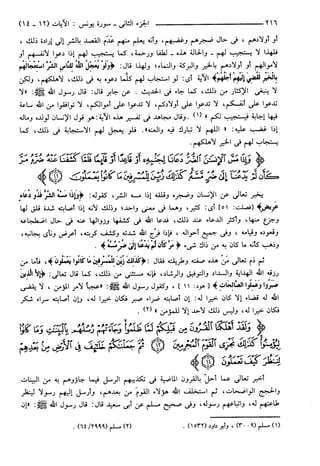 ٢١٦ الجزء الثانى ـ سورة يونس : الآيات (١٢ - ١٤)
أو أولادهم ، فى حال ضجرهم وغضبهم، وأنه يعلم منهم عدم القصد بالشر إلى إرادة ذلك ،
فلهذا لا يستجيب لهم ـ والحالة هذه ـ لطفا ورحمة، كما يستجيب لهم إذا دعوا لأنفسهم أو
لأموالهم أو أولادهم بالخير والبركة والنماء؛ ولهذا قال: ﴿وَلَوْ يُعَجِّلُ اللَّهُ لِلنَّاسِ الشَّرَّ اسْتِعْجَالَهُم
بِالْخَيْرِ لَقُضِيَ إِلَيْهِمْ أَجَلُهُمْ﴾ الآية أى: لو استجاب لهم كلما دعوه به فى ذلك، لأهلكهم، ولكن
لا ينبغى الإكثار من ذلك، كما جاء فى الحديث . عن جابر قال: قال رسول الله ﷺ: «لا
تدعوا على أنفسكم، لا تدعوا على أولادكم، لا تدعوا على أموالكم، لا توافقوا من الله ساعة
فيها إجابة فيستجيب لكم» (١) .وقال مجاهد فى تفسير هذه الآية: هو قول الإنسان لولده وماله
إذا غضب عليه: « اللهم لا تبارك فيه والعنه». فلو يعجل لهم الاستجابة فى ذلك، كما
يستجاب لهم فى الخير لأهلكهم.
﴿وَإِذَا مَسَّ الْإِنسَانَ الضُّرُّ دَعَانَا لِجَنبِهِ أَوْ قَاعِدًا أَوْ قَائِمًا فَلَمَّا كَشَفْنَا عَنْهُ ضُرَّهُ مَرَّ
كَأَن لَّمْ يَدْعُنَا إِلَىٰ ضُرٍّ مَّسَّهُ كَذَٰلِكَ زُيِّنَ لِلْمُسْرِفِينَ مَا كَانُوا يَعْمَلُونَ ﴿١٢﴾﴾
يخبر تعالى عن الإنسان وضجره وقلقه إذا مسه الشر، كقوله: ﴿وَإِذَا مَسَّهُ الشَّرُّ فَذُو دُعَاءٍ
عَرِيضٍ﴾ [فصلت: ٥١] أى: كثير، وهما فى معنى واحد؛ وذلك لأنه إذا أصابته شدة قلق لها
وجزع منها، وأكثر الدعاء عند ذلك، فدعا الله فى كشفها وزوالها عنه فى حال اضطجاعه
وقعوده وقيامه ، وفى جميع أحواله ، فإذا فرج الله شدته وكشف كربته، أعرض ونأى بجانبه،
وذهب كأنه ما كان به من ذاك شىء، ﴿مَرَّ كَأَن لَّمْ يَدْعُنَا إِلَىٰ ضُرٍّ مَّسَّهُ﴾ .
ثم ذم تعالى من هذه صفته وطريقته فقال: ﴿كَذَٰلِكَ زُيِّنَ لِلْمُسْرِفِينَ مَا كَانُوا يَعْمَلُونَ﴾، فأما من
رزقه الله الهداية والسداد والتوفيق والرشاد، فإنه مستثنى من ذلك، كما قال تعالى: ﴿إِلَّا الَّذِينَ
صَبَرُوا وَعَمِلُوا الصَّالِحَاتِ﴾ [هود: ١١] ، وكقول رسول الله ﷺ: «عجبا لأمر المؤمن ، لا يقضى
الله له قضاء إلا كان خيرا له: إن أصابته ضراء صبر فكان خيرا له، وإن أصابته سراء شكر
فكان خيرا له، وليس ذلك لأحد إلا للمؤمن » (٢) .
﴿وَلَقَدْ أَهْلَكْنَا الْقُرُونَ مِن قَبْلِكُمْ لَمَّا ظَلَمُوا وَجَاءَتْهُمْ رُسُلُهُم بِالْبَيِّنَاتِ وَمَا كَانُوا
لِيُؤْمِنُوا كَذَٰلِكَ نَجْزِي الْقَوْمَ الْمُجْرِمِينَ ﴿١٣﴾ ثُمَّ جَعَلْنَاكُمْ خَلَائِفَ فِي الْأَرْضِ مِن بَعْدِهِمْ
لِنَنظُرَ كَيْفَ تَعْمَلُونَ ﴿١٤﴾﴾
أخبر تعالى عما أحل بالقرون الماضية فى تكذيبهم الرسل فيما جاؤوهم به من البينات
والحجج الواضحات، ثم استخلف الله هؤلاء القوم من بعدهم، وأرسل إليهم رسولا لينظر
طاعتهم له، واتباعهم رسوله، وفى صحيح مسلم عن أبى سعيد قال: قال رسول الله ﷺ: «إن
(١) مسلم (٣٠٠٩)، وأبو داود (١٥٣٢) . (٢) مسلم (٢٩٩٩/ ٦٤) .